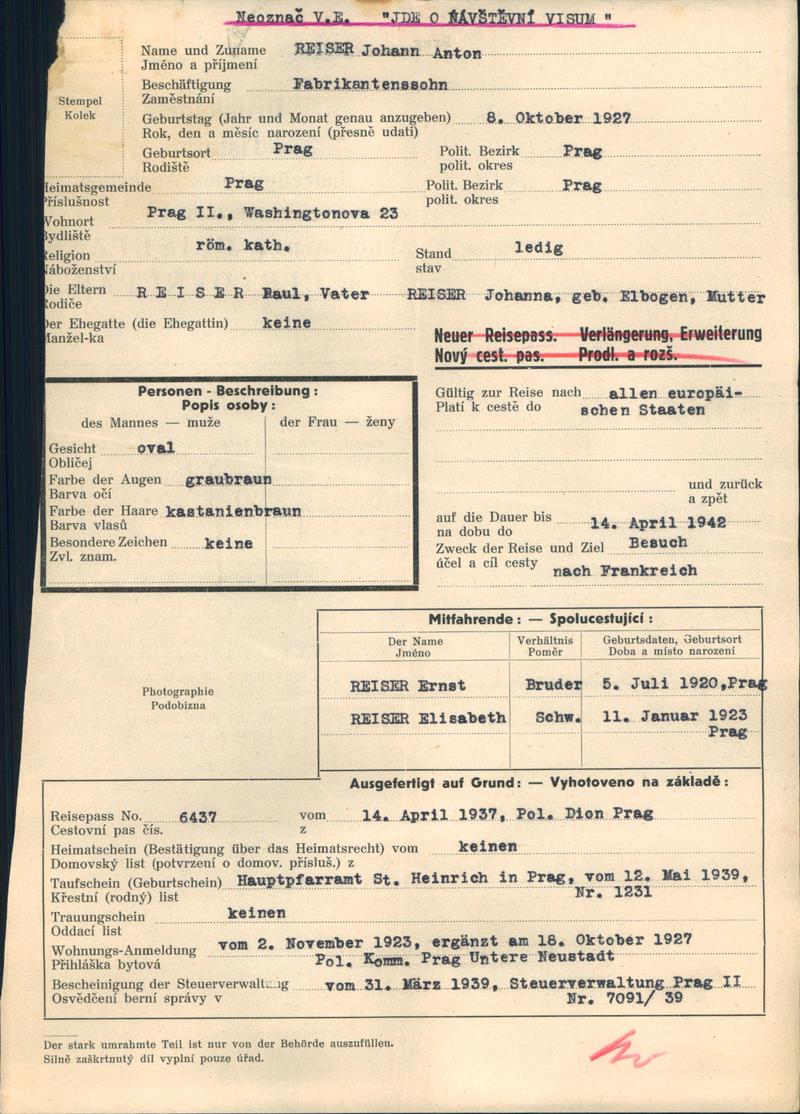 Neoznač V.E. "JDE O ŃÁVŠTĚVNÍ VISUM "
Name und Zuname REISER Johann Anton
Jméno a příjmení
Beschäftigung Fabrikantenssohn
Zaměstnání
Stempel
Kolek
Geburtstag (Jahr und Monat genau anzugeben) 8. Oktober 1927
Rok, den a měsíc narození (přesně udati)
Geburtsort Prag Polit. Bezirk Prag
Rodiště polit. okres
Heimatsgemeinde Prag Polit. Bezirk Prag
Příslušnost polit. okres
Wohnort Prag II., Washingtonova 23
Bydliště
Religion röm. kath. Stand ledig
Náboženství stav
Die Eltern R E I S E R Paul, Vater REISER Johanna, geb. Elbogen, Mutter
Rodiče
Der Ehegatte (die Ehegattin) keine
Manžel-ka
Neuer Reisepass. Verlängerung, Erweiterung
Nový cest. pas. Prodl. a rozš.
Personen - Beschreibung :
Popis osoby :
des Mannes — muže der Frau — ženy
Gesicht oval
Obličej
Farbe der Augen graubraun
Barva očí
Farbe der Haare kastanienbraun
Barva vlasů
Besondere Zeichen keine
Zvl. znam.
Gültig zur Reise nach allen europäi-
Platí k cestě do schen Staaten
und zurück
a zpět
auf die Dauer bis 14. April 1942
na dobu do
Zweck der Reise und Ziel Besuch
účel a cíl cesty nach Frankreich
Photographie
Podobizna
Mitfahrende : — Spolucestující :
Der Name Verhältnis Geburtsdaten, Geburtsort
Jméno Poměr Doba a místo narození
REISER Ernst Bruder 5. Juli 1920,Prag
REISER Elisabeth Schw. 11. Januar 1923
Prag
Ausgefertigt auf Grund : — Vyhotoveno na základě :
Reisepass No. 6437 vom 14. April 1937, Pol. Dion Prag
Cestovní pas čís. z
Heimatschein (Bestätigung über das Heimatsrecht) vom keinen
Domovský list (potvrzení o domov. přísluš.) z
Taufschein (Geburtschein) Hauptpfarramt St. Heinrich in Prag, vom 12. Mai 1939,
Křestní (rodný) list Nr. 1231
Trauungschein keinen
Oddací list
Wohnungs-Anmeldung vom 2. November 1923, ergänzt am 18. Oktober 1927
Přihláška bytová Pol. Komm. Prag Untere Neustadt
Bescheinigung der Steuerverwaltung vom 31. März 1939, Steuerverwaltung Prag II
Osvědčení berní správy v Nr. 7091/ 39
Der stark umrahmte Teil ist nur von der Behörde auszufüllen.
Silně zaškrtnutý díl vyplní pouze úřad.